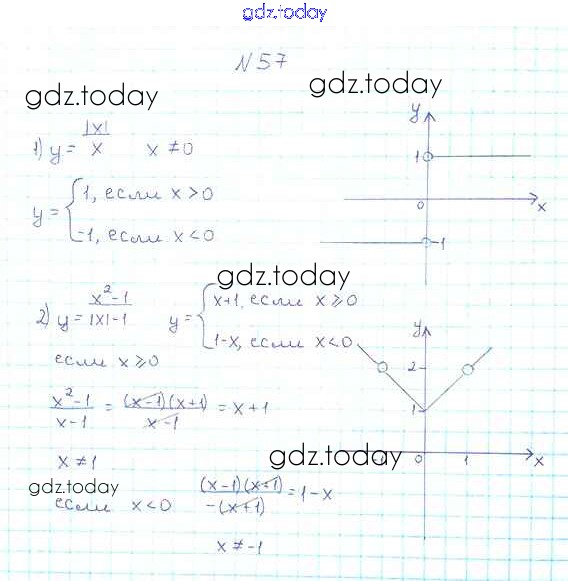 gdz.today
N 57
gdz.today
gdz.today
1) y = |x|/x   x ≠ 0
y = { 1, если x > 0
-1, если x < 0
y
1
0
x
-1
gdz.today
2) y = (x² - 1)/(|x| - 1)   y = { x+1, если x ⩾ 0
1-x, если x < 0
если x ⩾ 0
(x² - 1)/(x - 1) = ((x-1)(x+1))/(x-1) = x + 1
x ≠ 1
y
2
1
-1
0
1
x
gdz.today
gdz.today
если x < 0   ((x-1)(x+1))/(-(x+1)) = 1 - x
x ≠ -1